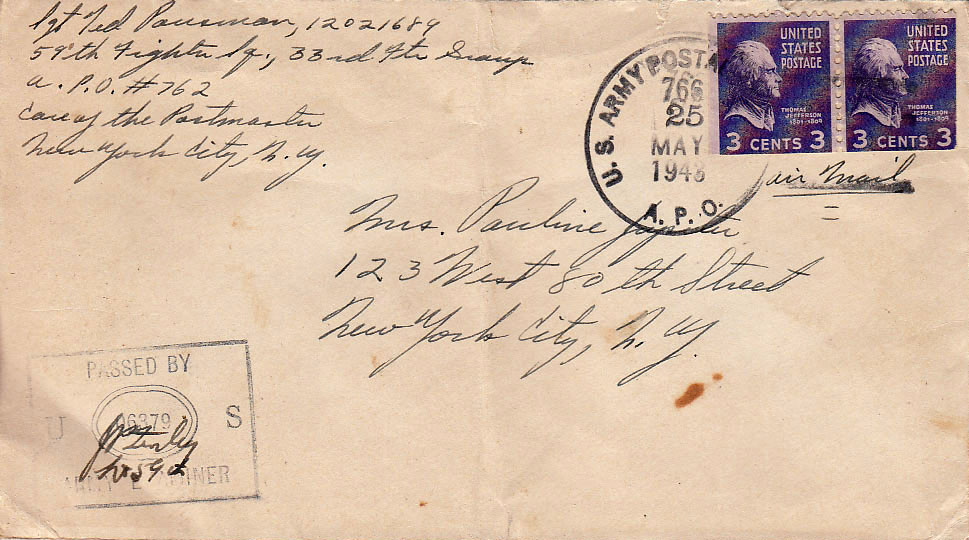 Sgt Ted Pausman, 12021689
59th Fighter Sq., 33rd Ftr Group
A.P.O. #762
Care of the Postmaster
New York City, N.Y.
U. S. ARMY POSTAL
766
25
MAY
1943
A. P. O.
UNITED
STATES
POSTAGE
THOMAS
JEFFERSON
1801-1809
3 CENTS 3
UNITED
STATES
POSTAGE
THOMAS
JEFFERSON
1801-1809
3 CENTS 3
air mail
Mrs. Pauline
123 West 80th Street
New York City, N.Y.
PASSED BY
U S
06379
ARMY EXAMINER